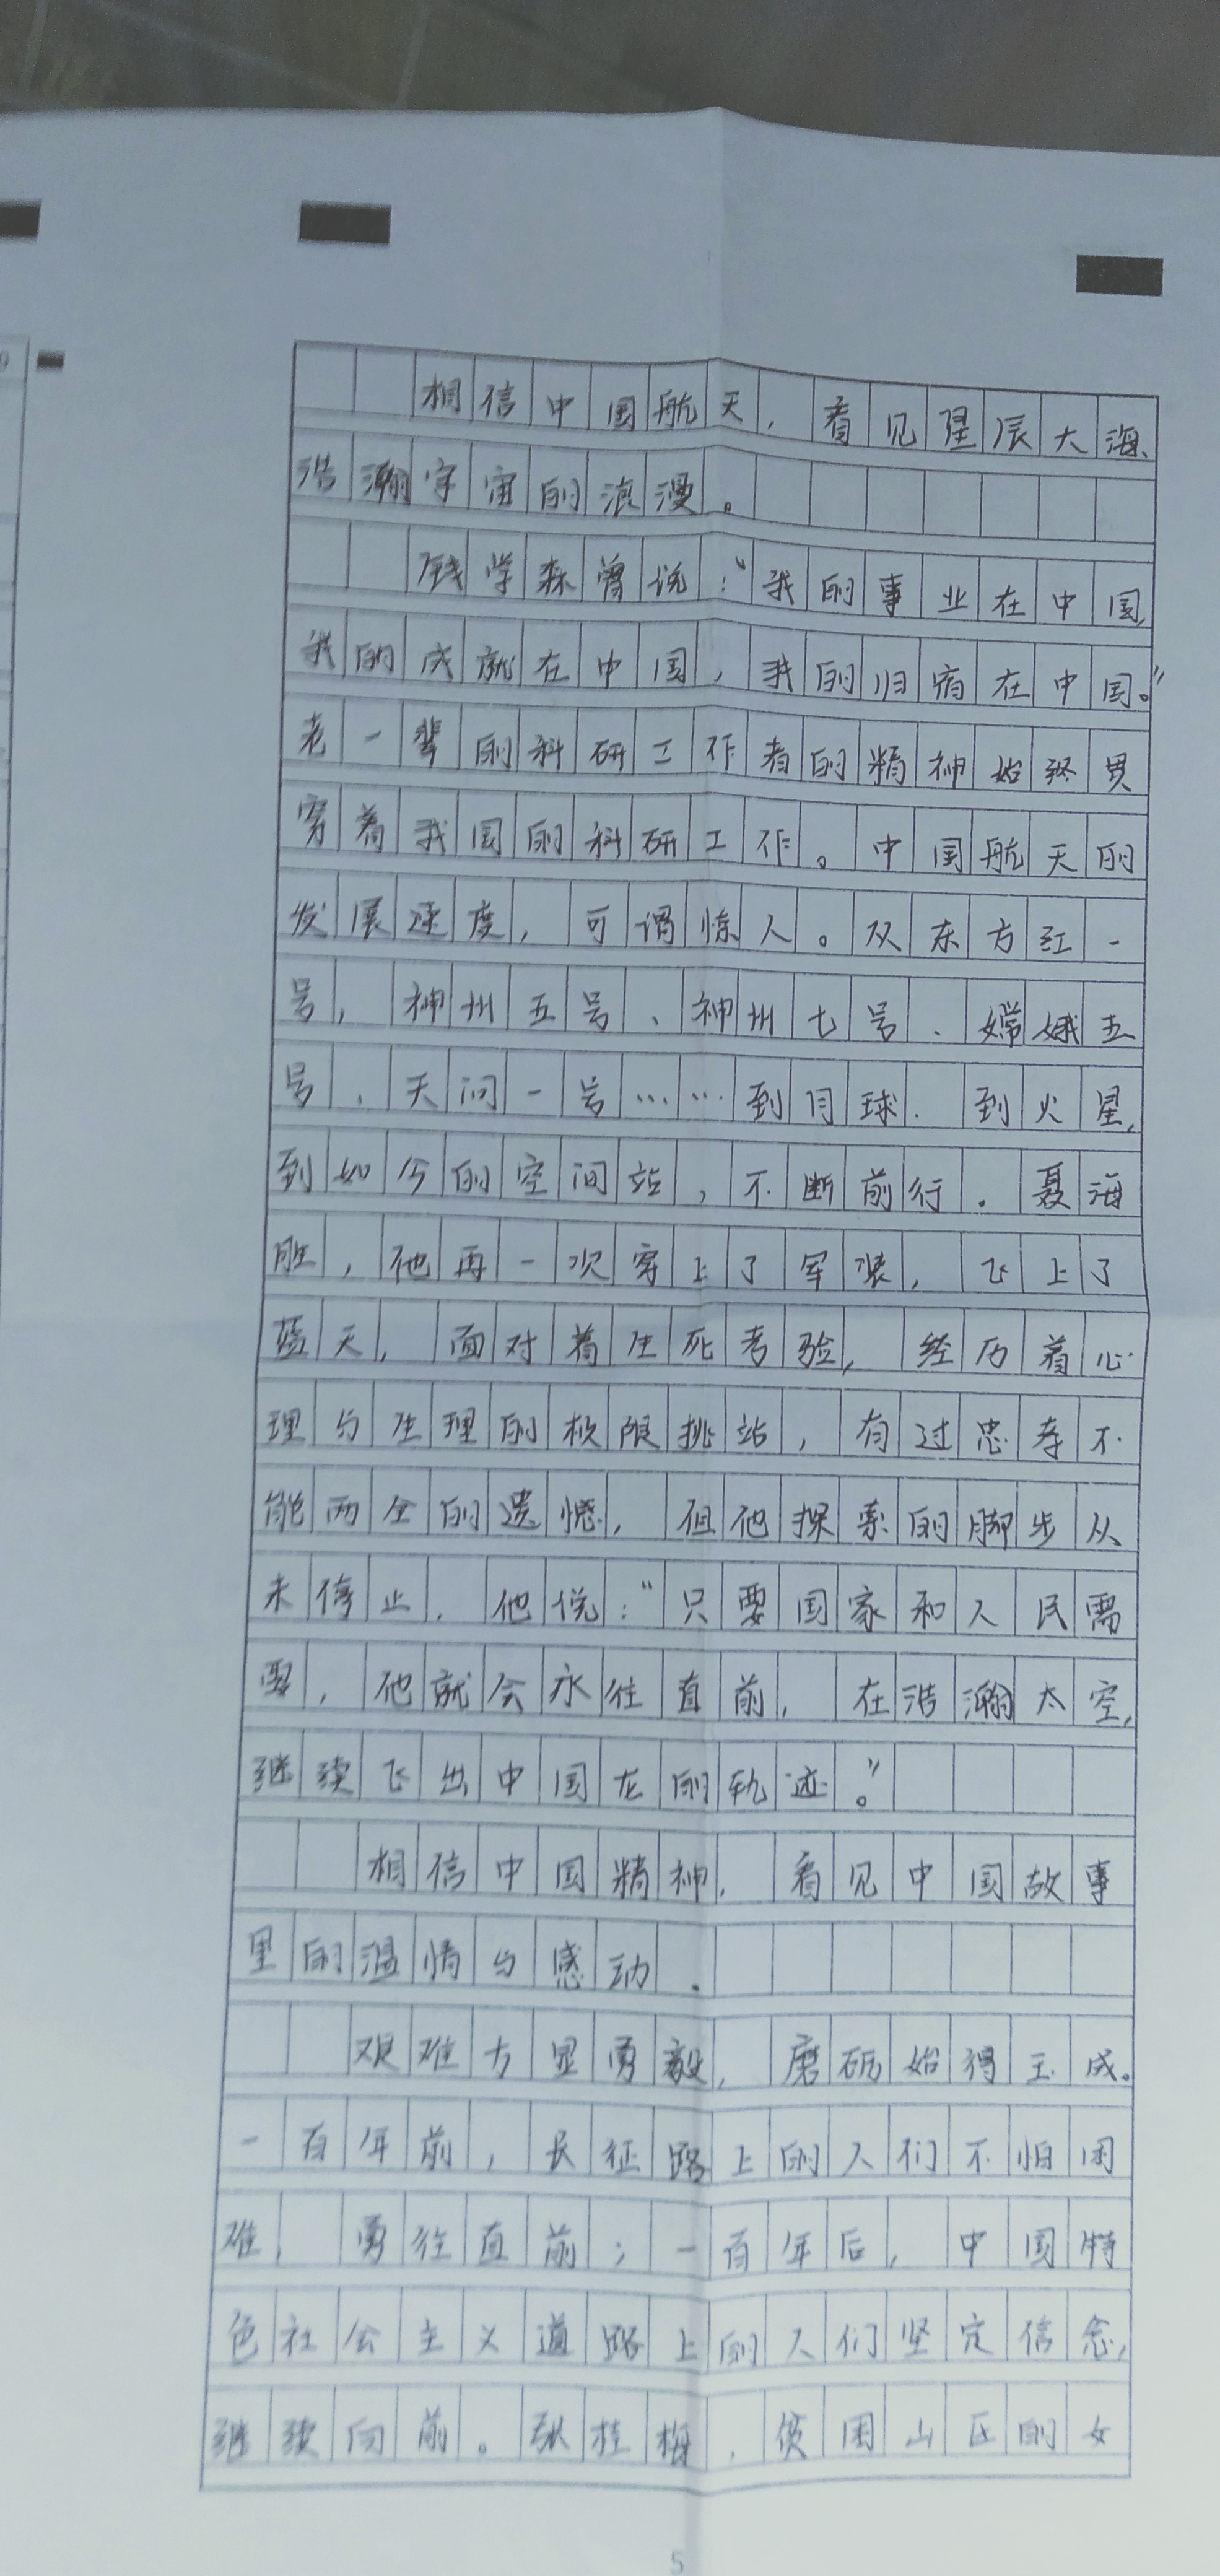 相信中国航天，看见星辰大海、
浩瀚宇宙的浪漫。
钱学森曾说：“我的事业在中国，
我的成就在中国，我的归宿在中国。”
老一辈的科研工作者的精神始终贯
穿着我国的科研工作。中国航天的
发展速度，可谓惊人。从东方红一
号，神州五号、神州七号、嫦娥五
号、天问一号……到月球、到火星，
到如今的空间站，不断前行。聂海
胜，他再一次穿上了军装，飞上了
蓝天，面对着生死考验，经历着心
理与生理的极限挑站，有过忠孝不
能两全的遗憾，但他探索的脚步从
未停止，他说：“只要国家和人民需
要，他就会永往直前，在浩瀚太空，
继续飞出中国龙的轨迹。”
相信中国精神，看见中国故事
里的温情与感动．
艰难方显勇毅，磨砺始得玉成。
一百年前，长征路上的人们不怕困
难，勇往直前；一百年后，中国特
色社会主义道路上的人们坚定信念，
继续向前。张桂梅，贫困山区的女
5